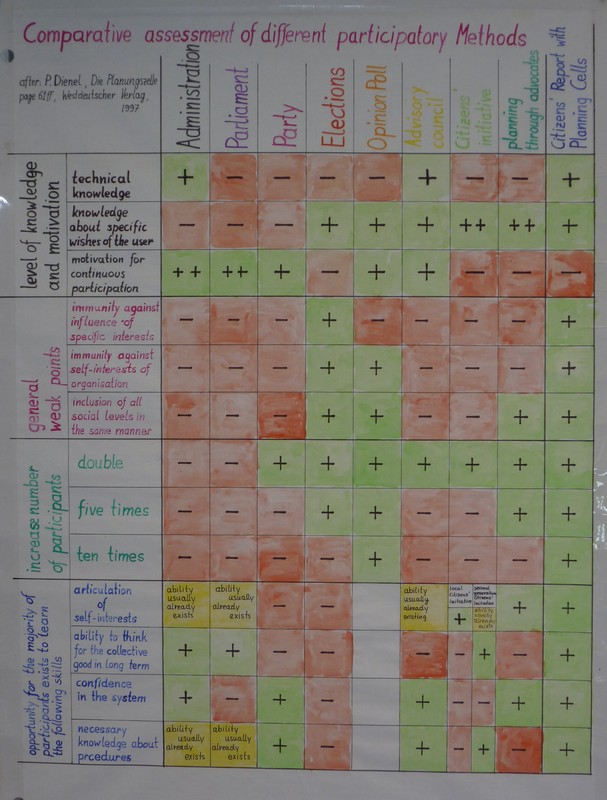 Comparative assessment of different participatory Methods
after: P. Dienel, Die Planungszelle
page 61ff, Westdeutscher Verlag,
1997
Administration
Parliament
Party
Elections
Opinion Poll
Advisory
council
Citizens'
initiative
planning
through advocates
Citizens' Report with
Planning Cells
level of knowledge
and motivation
technical
knowledge
+ − − − − + − − +
knowledge
about specific
wishes of the user
− − − + + + ++ ++ +
motivation for
continuous
participation
++ ++ + − + + − − −
general
weak points
immunity against
influence of
specific interests
− − − + − − − − +
immunity against
self-interests of
organisation
− − − + + − − − +
inclusion of all
social levels in
the same manner
− − − + + − − + +
increase number
of participants
double
− − + + + + + + +
five times
− − − + + − − + +
ten times
− − − − + − − − +
opportunity for the majority of
participants exists to learn
the following skills
articulation
of
self-interests
ability
usually
already
exists
ability
usually
already
exists
− −
ability
usually
already
existing
local
Citizens'
initiative
+
Citizens'
initiative
ability
usually
already
exists
+ +
ability to think
for the collective
good in long term
+ + − − − − + − +
confidence
in the system
+ − + − + − − + +
necessary
knowledge about
prcedures
ability
usually
already
exists
ability
usually
already
exists
+ − + − + − +